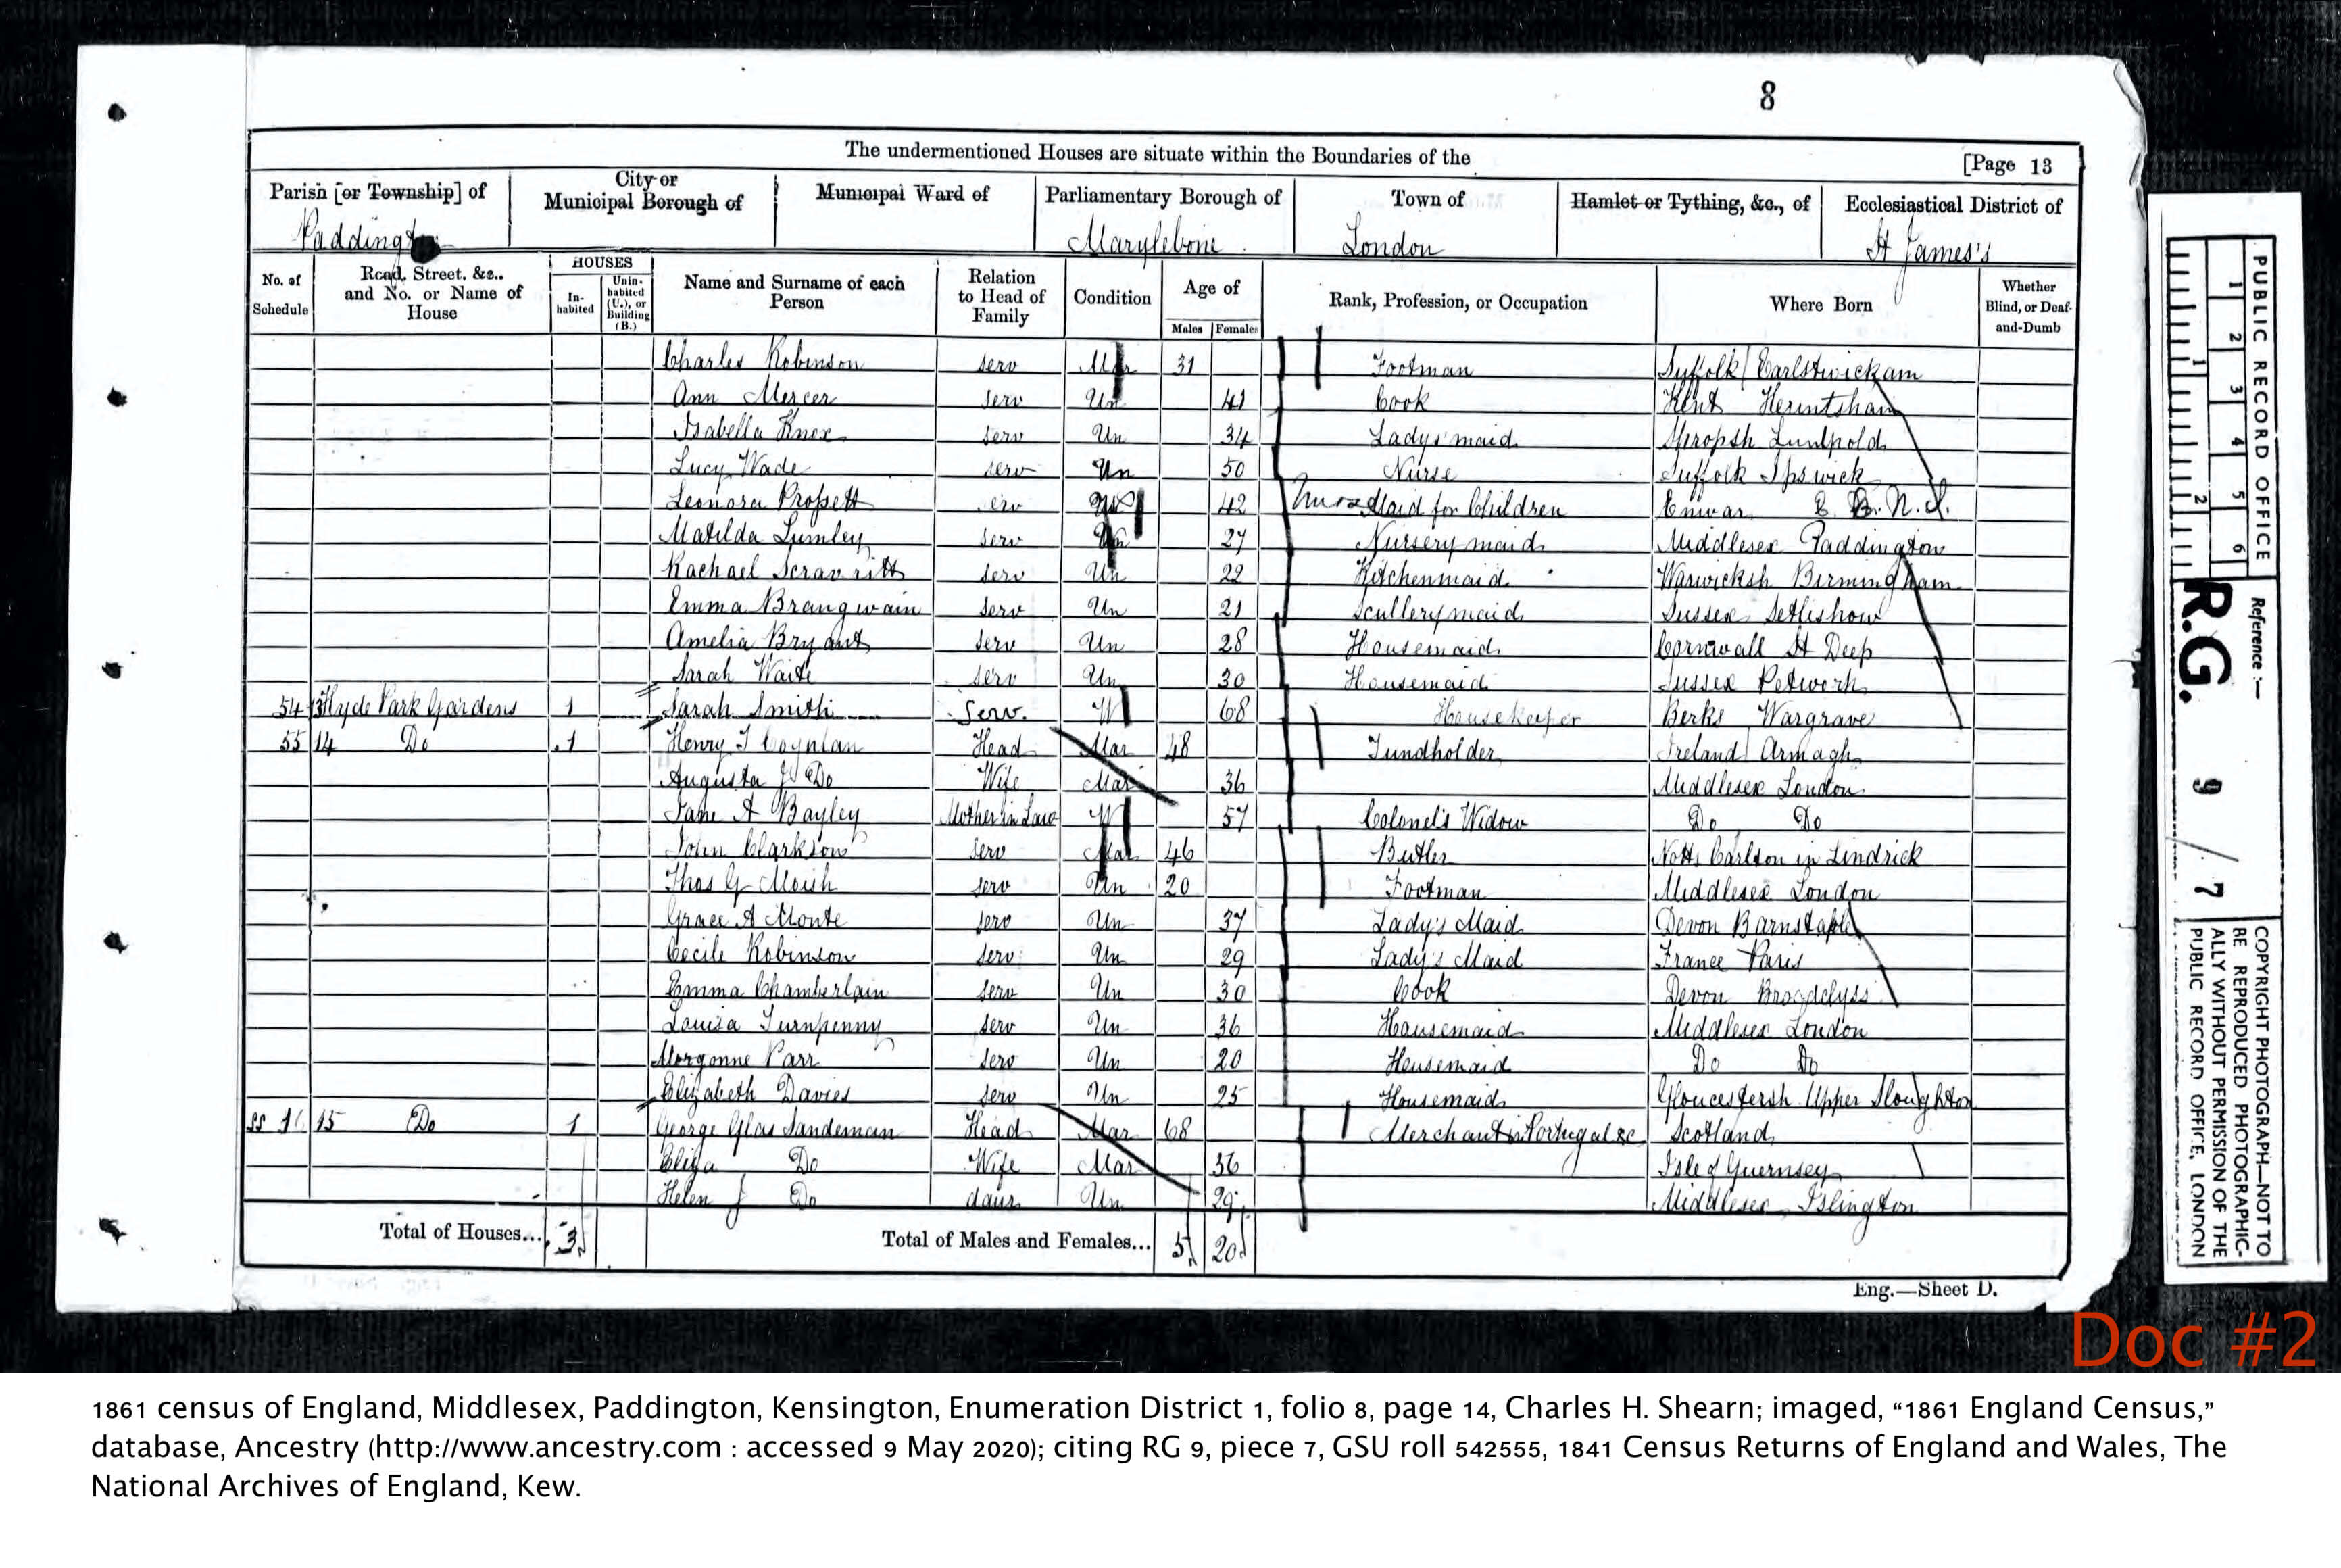 8
The undermentioned Houses are situate within the Boundaries of the [Page 13
Parish [or Township] of City or Municipal Borough of Municipal Ward of Parliamentary Borough of Town of Hamlet or Tything, &c., of Ecclesiastical District of
Paddington Marylebone London St James's
No. of Schedule Road, Street, &c., and No. or Name of House HOUSES Inhabited Uninhabited (U.), or Building (B.) Name and Surname of each Person Relation to Head of Family Condition Age of Males Females Rank, Profession, or Occupation Where Born Whether Blind, or Deaf-and-Dumb
Charles Robinson serv Mar 31 Footman Suffolk
Ann Mercer serv Un 41 Cook Kent
Isabella Knox serv Un 34 Lady's maid Shropsh
Lucy Wade serv Un 50 Nurse Suffolk Ipswick
Leonora 42 Maid for Children
Matilda Lumley serv Un 27 Nursery maid Middlesex Paddington
Rachael serv Un 22 Kitchenmaid Warwicksh Birmingham
Emma Brangwain serv Un 21 Scullerymaid Sussex
Amelia Bryant serv Un 28 Housemaid Cornwall St Deep
Sarah Waite serv Un 30 Housemaid Sussex Petworth
54 13 Hyde Park Gardens 1 Sarah Smith Serv. W 68 Housekeeper Berks Wargrave
55 14 Do 1 Henry Head Mar 48 Fundholder Ireland Armagh
Augusta J Do Wife Mar 36 Middlesex London
Jane A Bayley Mother in Law W 57 Colonel's Widow Do Do
John Clarkson serv Mar 46 Butler Notts Carlton in Lindrick
Thos G serv Un 20 Footman Middlesex London
Grace A Monte serv Un 37 Lady's Maid Devon Barnstaple
Cecile Robinson serv Un 29 Lady's Maid France Paris
Emma Chamberlain serv Un 30 Cook Devon
Louisa Turnpenny serv Un 36 Housemaid Middlesex London
Parr serv Un 20 Housemaid Do Do
Elizabeth Davies serv Un 25 Housemaid Gloucestersh Upper
15 Do 1 George Glas Sandeman Head Mar 68 Merchant in Portugal &c Scotland
Eliza Do Wife Mar 36 Isle of Guernsey
Helen J Do daur Un 29 Middlesex Islington
Total of Houses... 3 Total of Males and Females... 5 20
Eng.—Sheet D.
1 2 3 4 5 6
1 2
PUBLIC RECORD OFFICE
Reference :—
R.G. 9 / 7
COPYRIGHT PHOTOGRAPH—NOT TO
BE REPRODUCED PHOTOGRAPHIC-
ALLY WITHOUT PERMISSION OF THE
PUBLIC RECORD OFFICE, LONDON
Doc #2
1861 census of England, Middlesex, Paddington, Kensington, Enumeration District 1, folio 8, page 14, Charles H. Shearn; imaged, “1861 England Census,”
database, Ancestry (http://www.ancestry.com : accessed 9 May 2020); citing RG 9, piece 7, GSU roll 542555, 1841 Census Returns of England and Wales, The
National Archives of England, Kew.